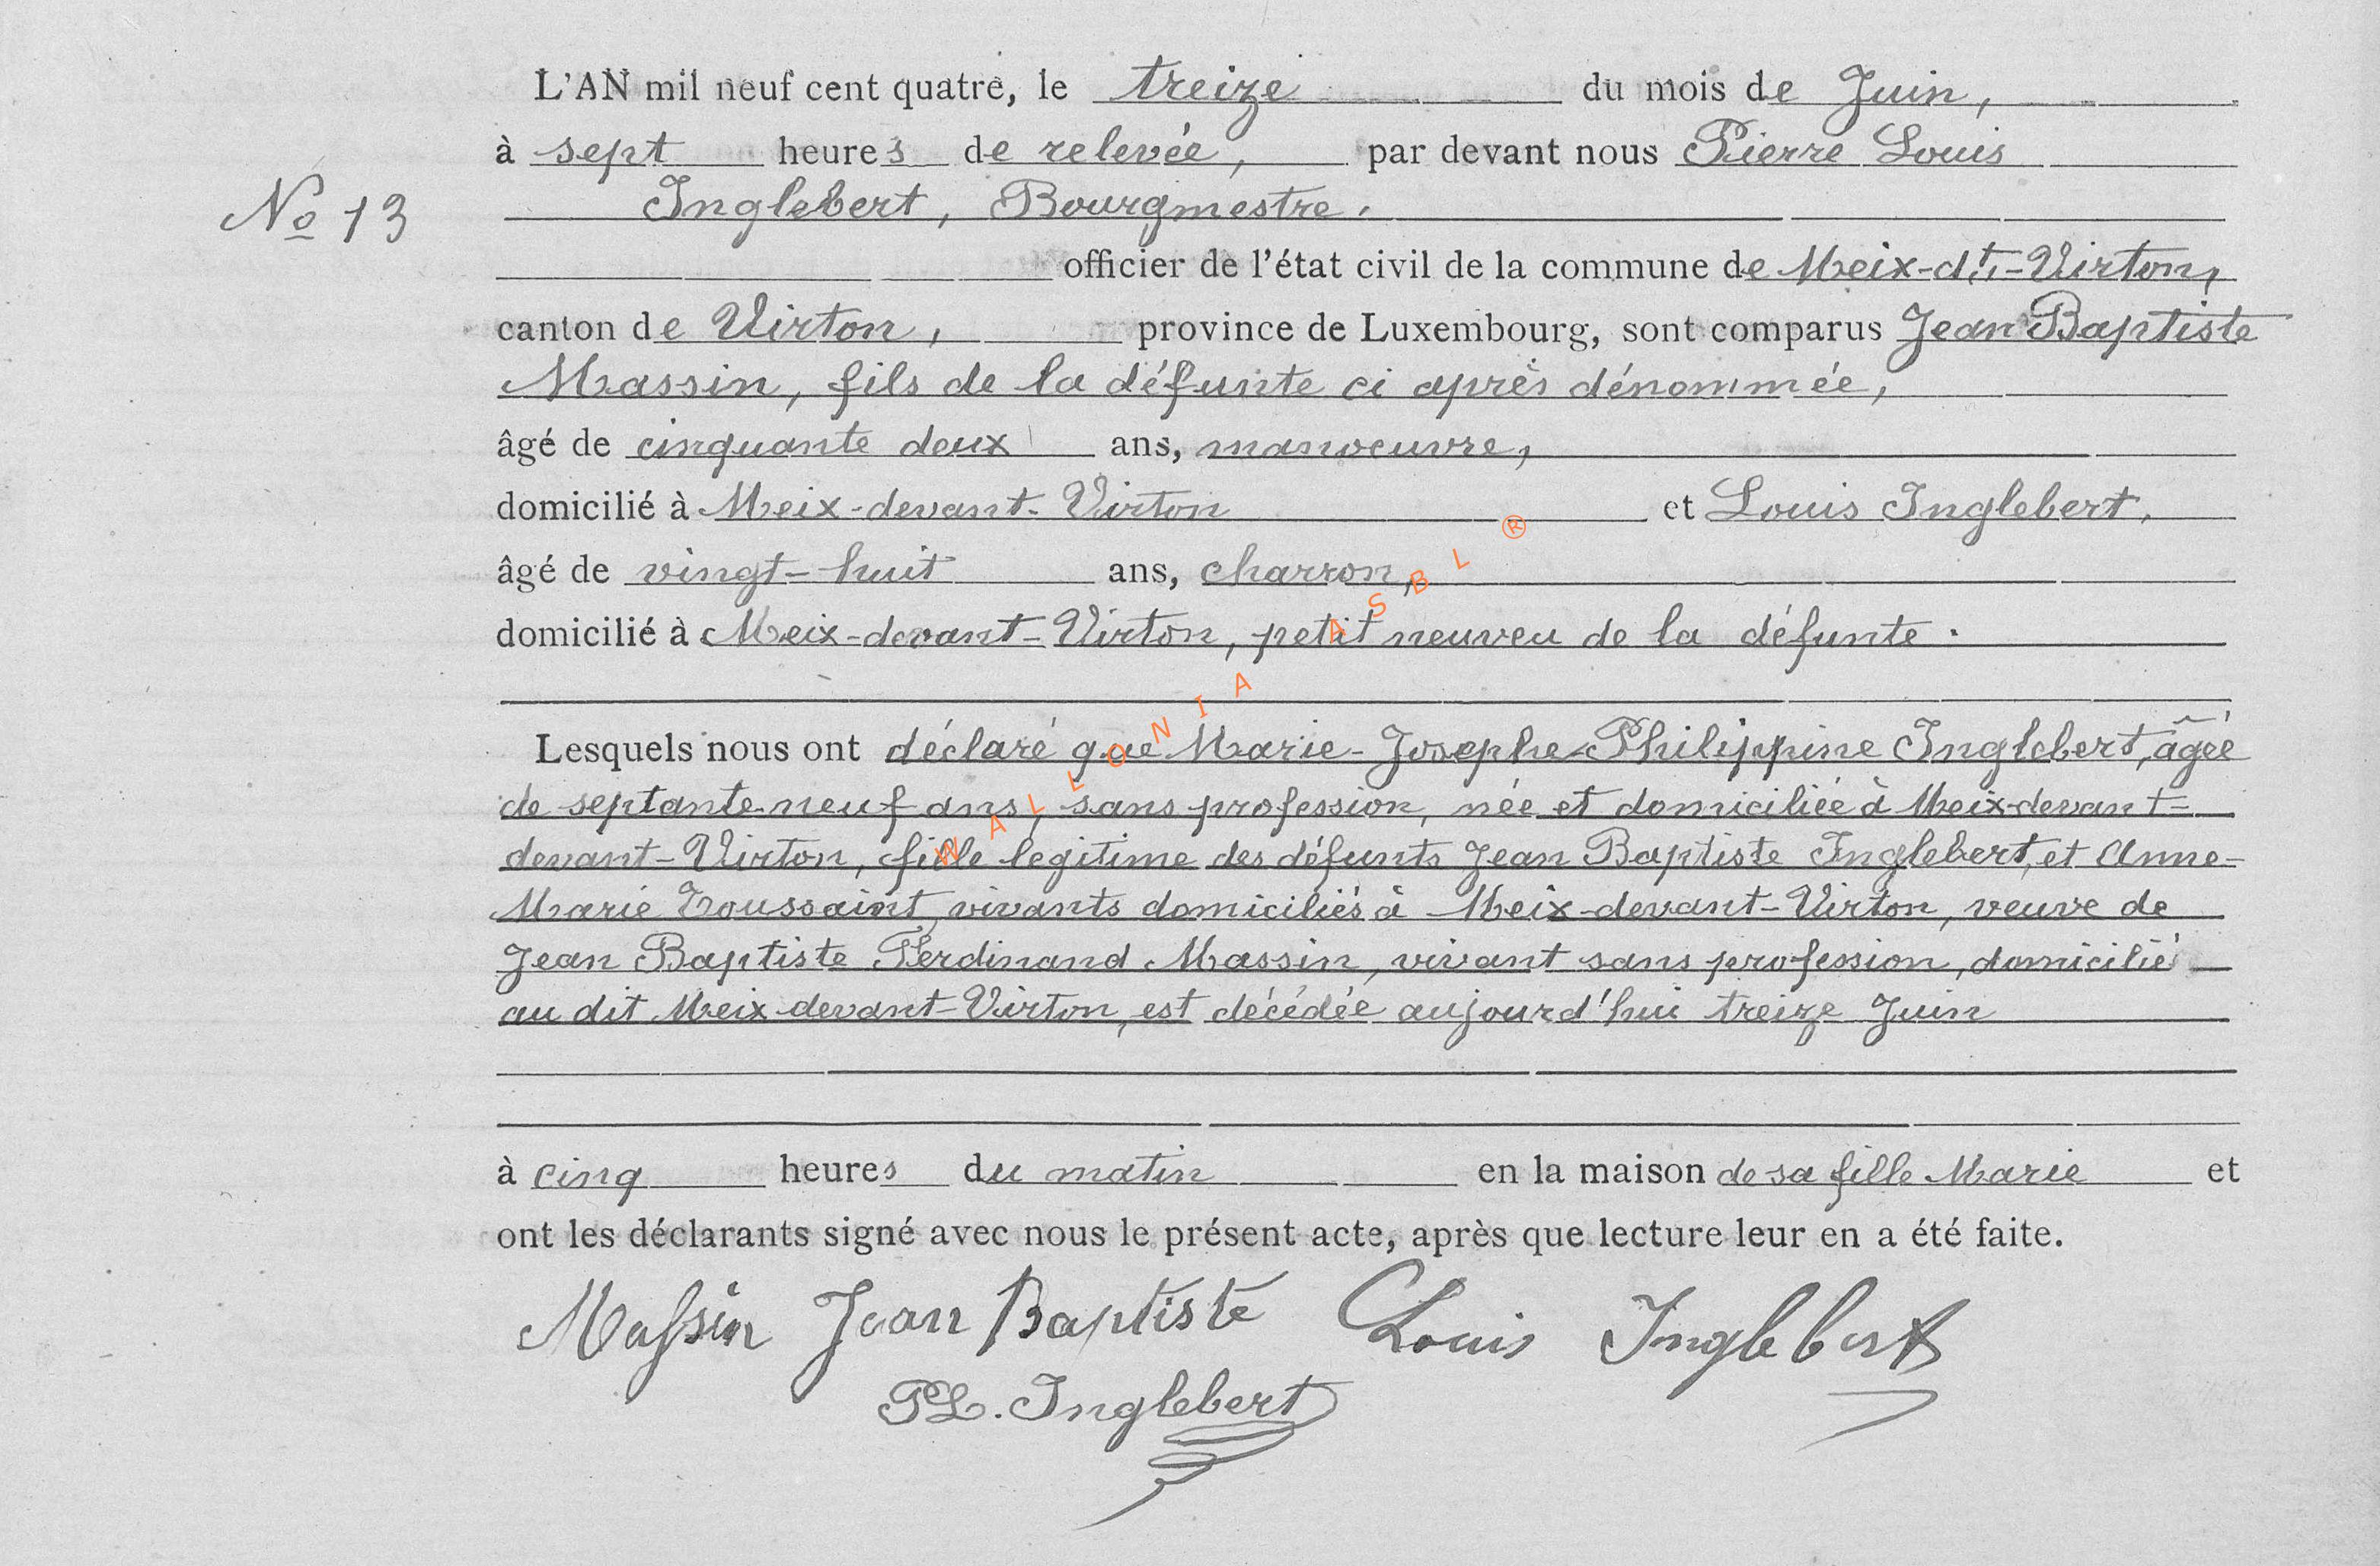 L'AN mil neuf cent quatre, le treize du mois de Juin,
à sept heures de relevée, par devant nous Pierre Louis
No 13
Inglebert, Bourgmestre.
officier de l'état civil de la commune de Meix-dt-Virton,
canton de Virton, province de Luxembourg, sont comparus Jean Baptiste
Massin, fils de la défunte ci après dénommée,
âgé de cinquante deux ans, manoeuvre,
domicilié à Meix-devant-Virton et Louis Inglebert,
âgé de vingt-huit ans, charron,
domicilié à Meix-devant-Virton, petit neuveu de la défunte.
Lesquels nous ont déclaré que Marie-Josephe-Philippine Inglebert, âgée
de septante-neuf ans, sans profession, née et domiciliée à Meix-devant-
devant-Virton, fille légitime des défunts Jean Baptiste Inglebert, et Anne-
Marie Toussaint, vivants domiciliés à Meix-devant-Virton, veuve de
Jean Baptiste Ferdinand Massin, vivant sans profession, domicilié
au dit Meix-devant-Virton, est décédée aujourd'hui treize Juin
à cinq heures du matin en la maison de sa fille Marie et
ont les déclarants signé avec nous le présent acte, après que lecture leur en a été faite.
Massin Jean Baptiste Louis Inglebert
PL. Inglebert
WALLONIA ASBL ®